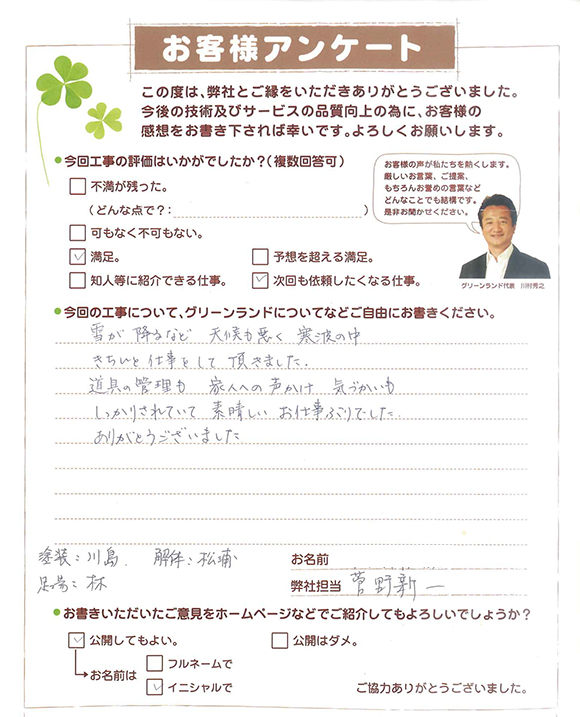 お客様アンケート
この度は、弊社とご縁をいただきありがとうございました。
今後の技術及びサービスの品質向上の為に、お客様の
感想をお書き下されば幸いです。よろしくお願いします。
●今回工事の評価はいかがでしたか？(複数回答可)
不満が残った。
(どんな点で？: )
可もなく不可もない。
満足。 予想を超える満足。
知人等に紹介できる仕事。 次回も依頼したくなる仕事。
お客様の声が私たちを熱くします。
厳しいお言葉、ご提案、
もちろんお誉めの言葉など
どんなことでも結構です。
是非お聞かせください。
グリーンランド代表 川村秀之
●今回の工事について、グリーンランドについてなどご自由にお書きください。
雪が 降るなど 天候も悪く 寒波の中
きちんと仕事をして 頂きました.
道具の管理も 家人への声かけ 気づかいも
しっかりされていて 素晴しい お仕事ぶりでした.
ありがとうございました
塗装:川島. 解体:松浦
足場:林
お名前
弊社担当 菅野新一
●お書きいただいたご意見をホームページなどでご紹介してもよろしいでしょうか？
公開してもよい。 公開はダメ。
お名前は フルネームで
イニシャルで
ご協力ありがとうございました。